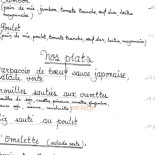 (pain de mie, jambon, tomate tranche, œuf dur, laitue
mayonnaise)
Poulet
(pain de mie, poulet, tomate tranche, œuf dur, laitue, mayonnaise)
Nos plats
carpaccio de bœuf sauce japonaise,
salade verte
nouilles sautées aux crevettes
riz sauté au poulet
l'omelette (salade verte)